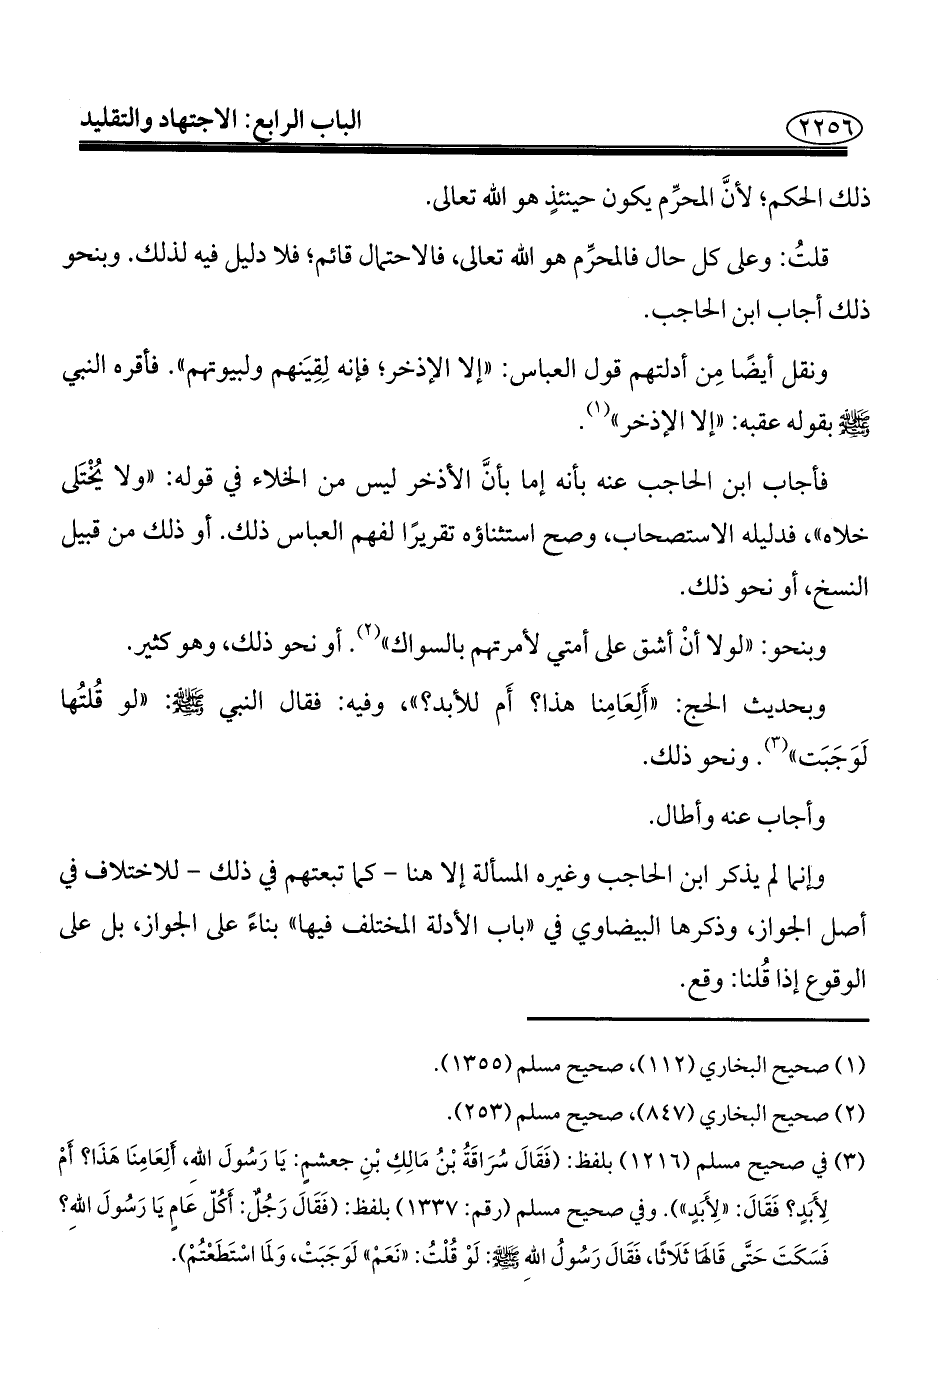 ٢٢٥٦
الباب الرابع: الاجتهاد والتقليد
ذلك الحكم؛ لأنَّ المحرِّم يكون حينئذٍ هو الله تعالى.
قلتُ: وعلى كل حال فالمحرِّم هو الله تعالى، فالاحتمال قائم؛ فلا دليل فيه لذلك. وبنحو
ذلك أجاب ابن الحاجب.
ونقل أيضًا مِن أدلتهم قول العباس: «إلا الإذخر؛ فإنه لِقِيَنهم ولبيوتهم». فأقره النبي
ﷺ بقوله عقبه: «إلا الإذخر»(١).
فأجاب ابن الحاجب عنه بأنه إما بأنَّ الأذخر ليس من الخلاء في قوله: «ولا يُخْتَلى
خلاه»، فدليله الاستصحاب، وصح استثناؤه تقريرًا لفهم العباس ذلك. أو ذلك من قبيل
النسخ، أو نحو ذلك.
وبنحو: «لولا أنْ أشق على أمتي لأمرتهم بالسواك»(٢). أو نحو ذلك، وهو كثير.
وبحديث الحج: «أَلِعَامِنا هذا؟ أَم للأبد؟»، وفيه: فقال النبي ﷺ: «لو قُلتُها
لَوَجَبَت»(٣). ونحو ذلك.
وأجاب عنه وأطال.
وإنما لم يذكر ابن الحاجب وغيره المسألة إلا هنا - كما تبعتهم في ذلك - للاختلاف في
أصل الجواز، وذكرها البيضاوي في «باب الأدلة المختلف فيها» بناءً على الجواز، بل على
الوقوع إذا قُلنا: وقع.
(١) صحيح البخاري (١١٢)، صحيح مسلم (١٣٥٥).
(٢) صحيح البخاري (٨٤٧)، صحيح مسلم (٢٥٣).
(٣) في صحيح مسلم (١٢١٦) بلفظ: (فَقَالَ سُرَاقَةُ بْنُ مَالِكِ بْنِ جعشمٍ: يَا رَسُولَ اللهِ، أَلِعَامِنَا هَذَا؟ أَمْ
لِأَبَدٍ؟ فَقَالَ: «لِأَبَدٍ»). وفي صحيح مسلم (رقم: ١٣٣٧) بلفظ: (فَقَالَ رَجُلٌ: أَكُلّ عَامٍ يَا رَسُولَ اللهِ؟
فَسَكَتَ حَتَّى قَالَهَا ثَلَاثًا، فَقَالَ رَسُولُ اللهِ ﷺ: لَوْ قُلْتُ: «نَعَمْ» لَوَجَبَتْ، وَلَمَا اسْتَطَعْتُمْ).